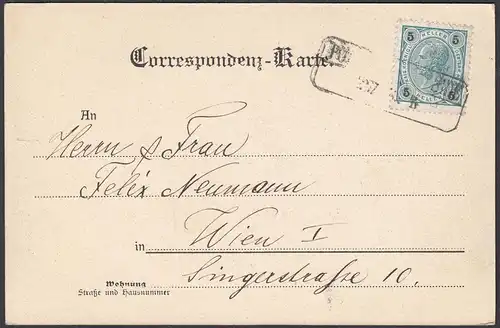 Correspondenz-Karte.
5 HELLER 5
5 5
257
An
Herrn & Frau
Felix Neumann
in Wien I
Singerstraße 10.
Wohnung
Straße und Hausnummer